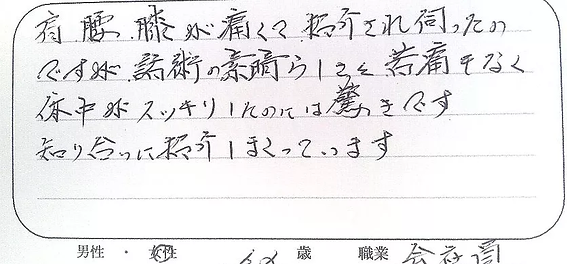 肩 腰 膝が痛くて 紹介され伺ったの
ですが 話術の素晴らしさと 苦痛もなく
体中がスッキリしたのには驚きです
知り合いに紹介しまくっています
男性 ・ 女性 歳 職業 会社員